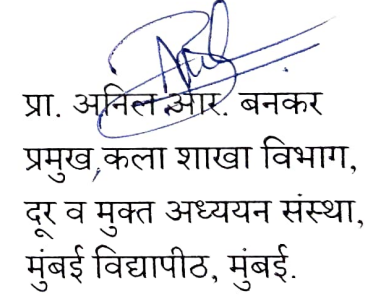 प्रा. अनिल आर. बनकर
प्रमुख, कला शाखा विभाग,
दूर व मुक्त अध्ययन संस्था,
मुंबई विद्यापीठ, मुंबई.